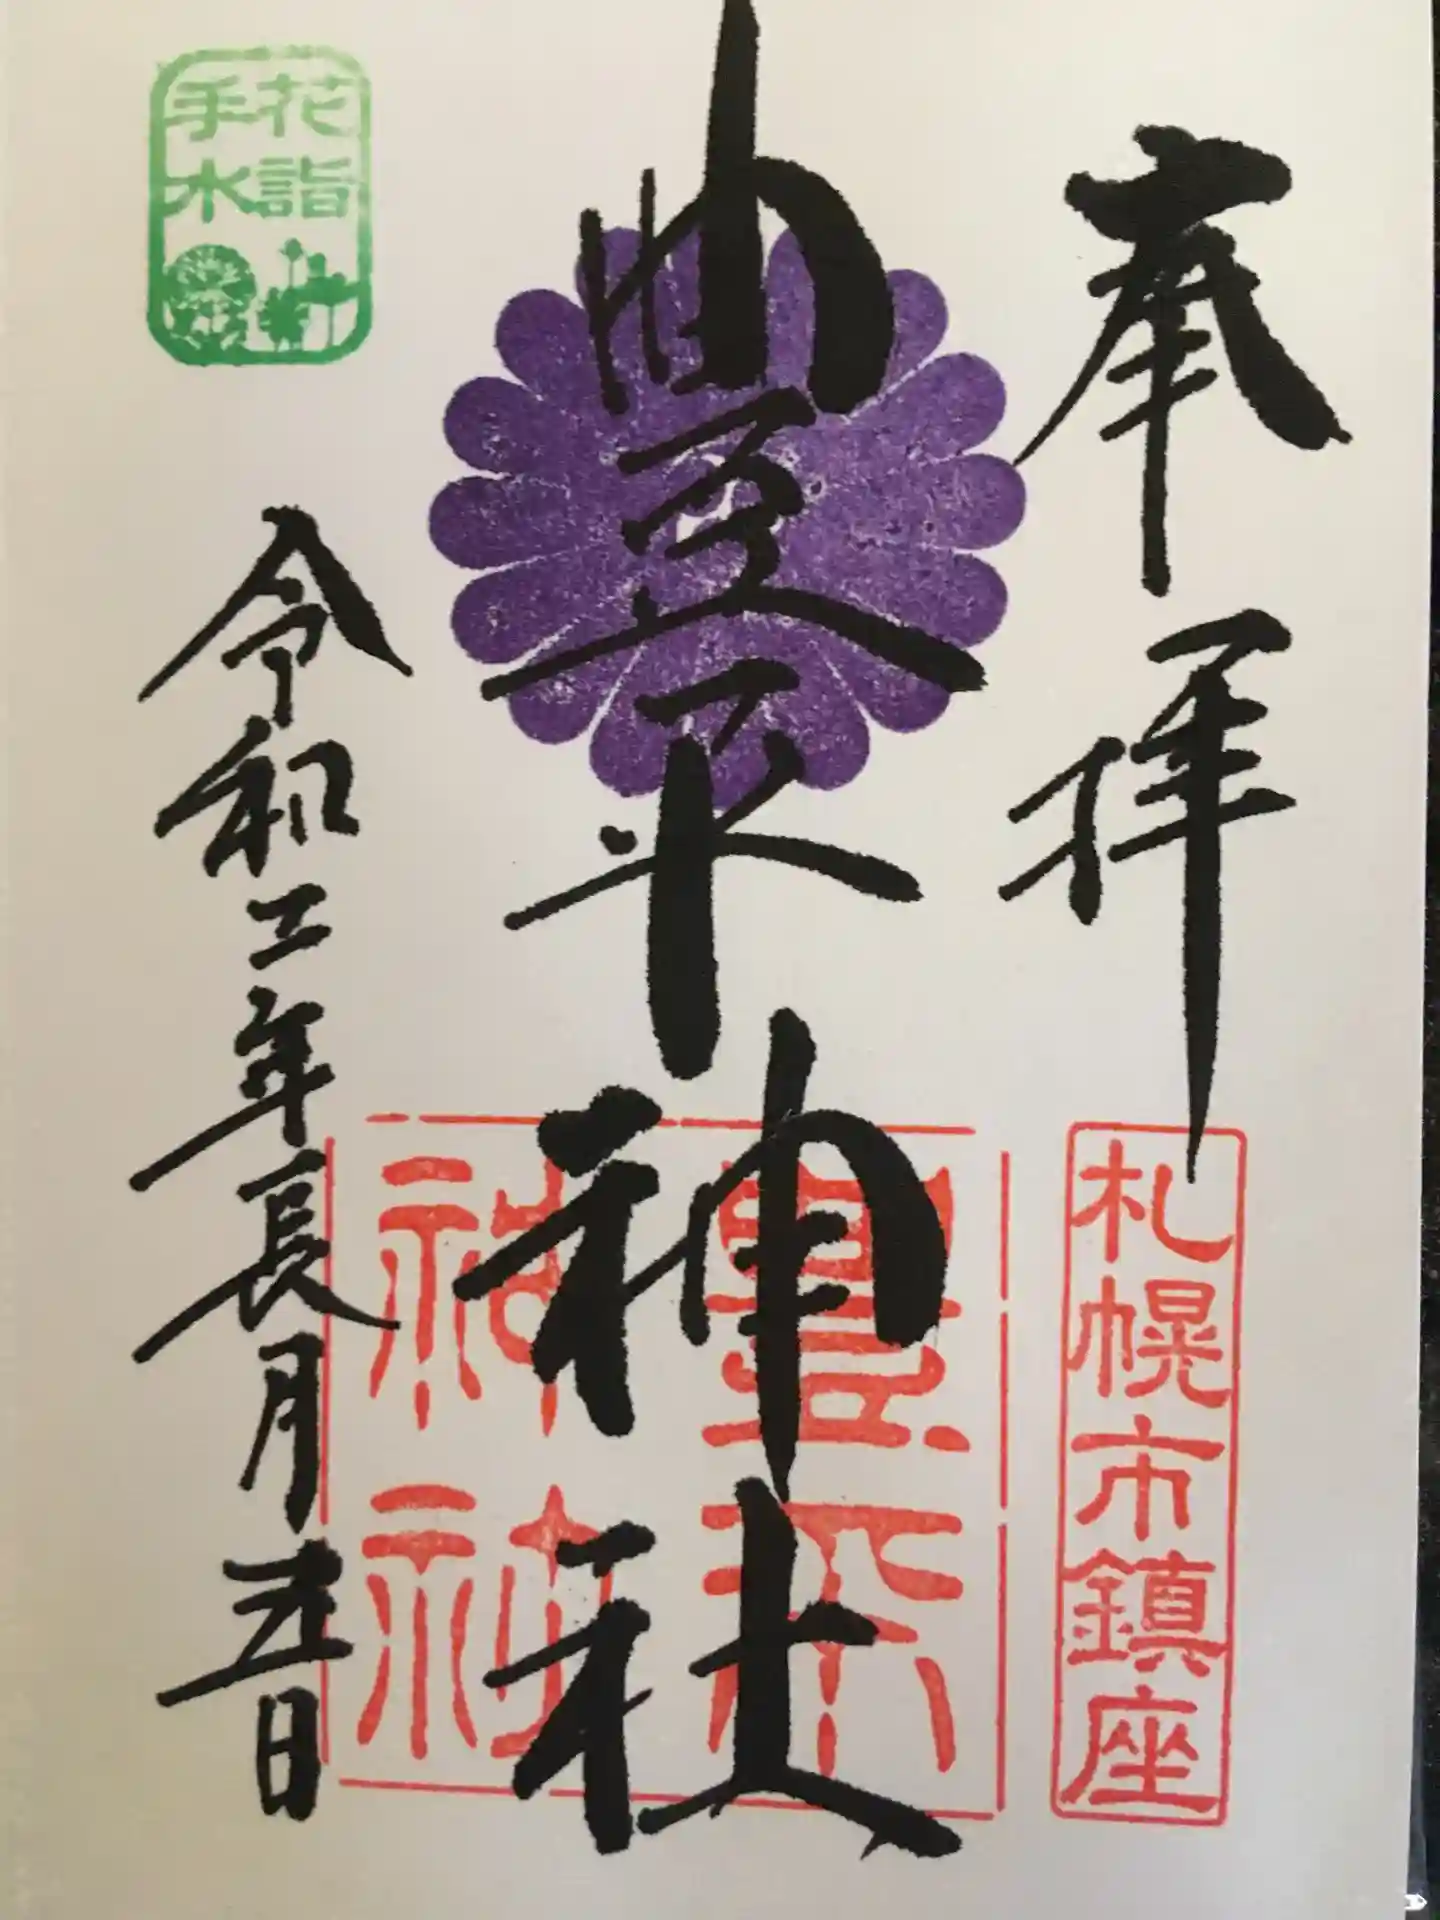 奉拝
札幌市鎮座
豊平神社
豊平
神社
令和二年長月五日
花詣
手水